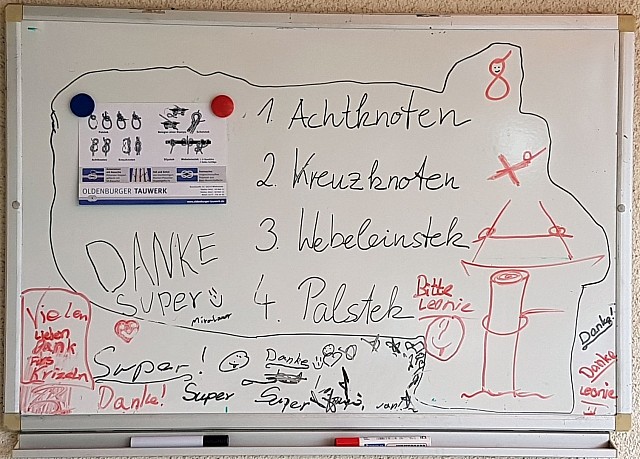 1. Achtknoten
2. Kreuzknoten
3. Webeleinstek
4. Palstek
OLDENBURGER TAUWERK
DANKE
Super
Bitte
Leonie
Vielen
lieben
dank
fürs
Krizeln
Super!
Danke
Danke!
Super
Super
Danke!
Danke
Leonie